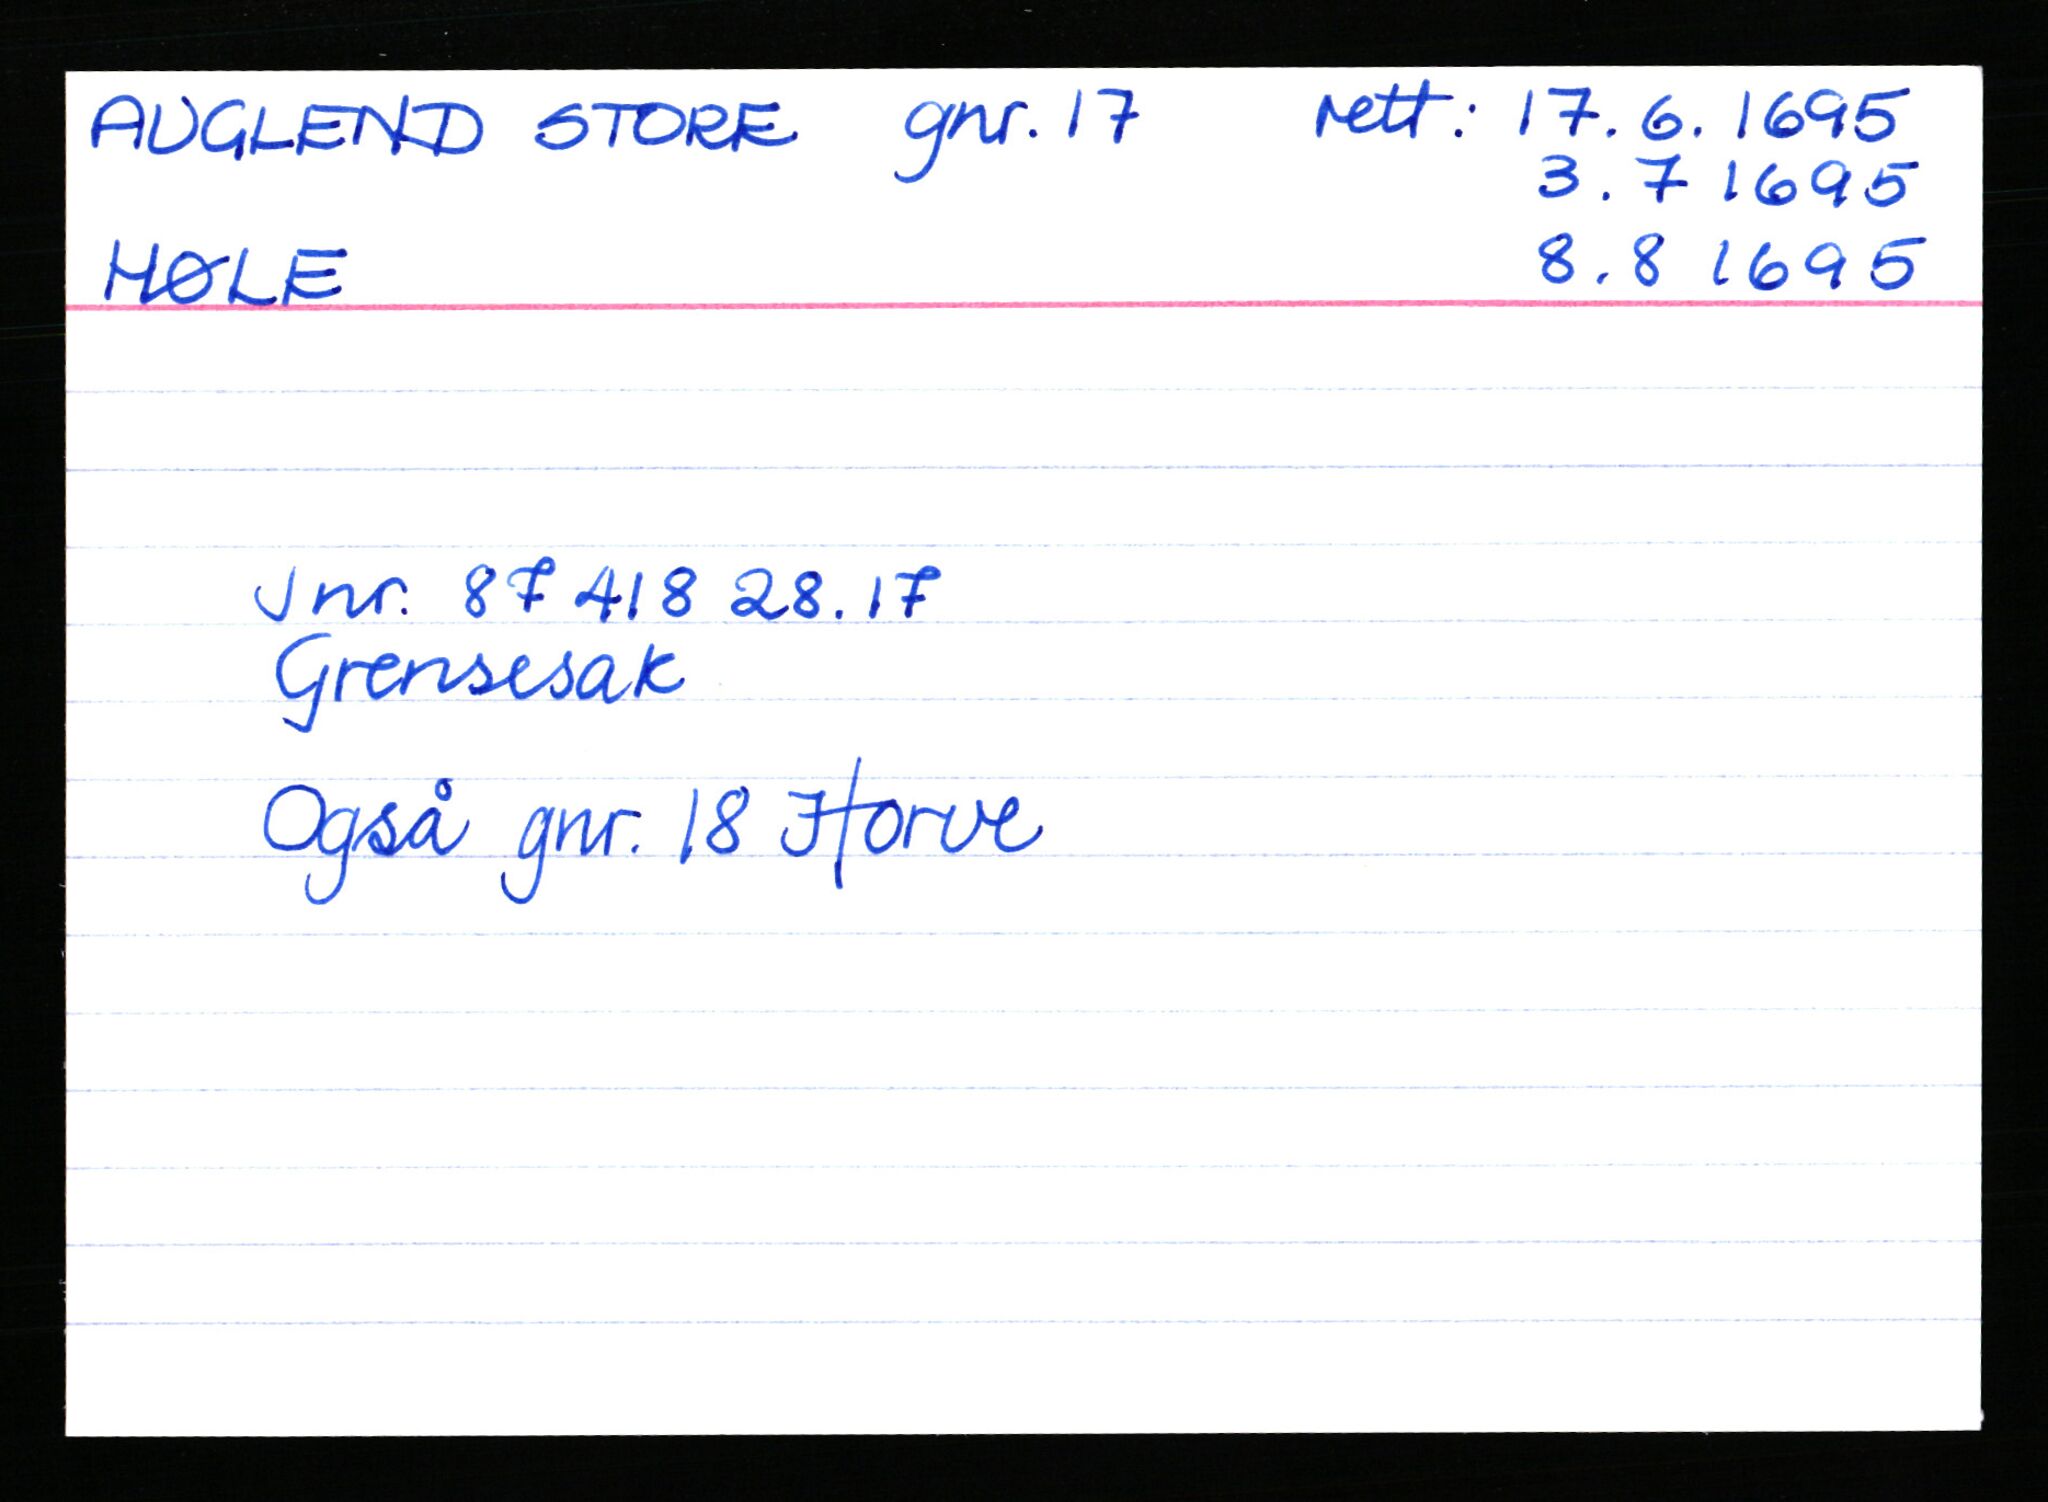 AUGLEND STORE gnr. 17 rett: 17. 6. 1695
3. 7 1695
HØLE 8. 8 1695
Jnr. 87 418 28. 17
Grensesak
Også gnr. 18 Horve